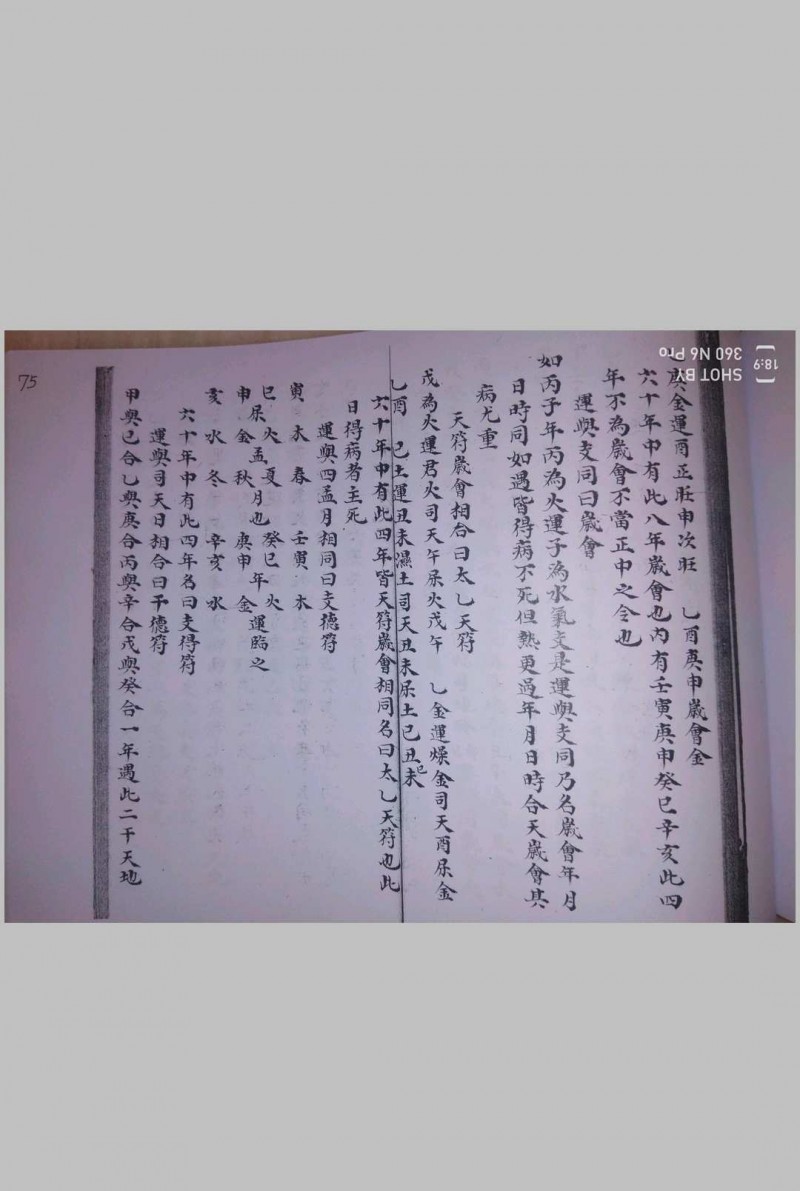 庚金運酉正旺申次旺　乙酉庚申歲會金
六十年中有此八年歲會也內有壬寅庚申癸巳辛亥此四
年不為歲會不當正中之令也
運與支同曰歲會
如丙子年丙為火運子為水氣支是運與支同乃名歲會年月
日時同如遇皆得病不死但熱更過年月日時合天歲會其
病尤重
天符歲會相合曰太乙天符
戊為火運君火司天午屬火戊午　乙金運燥金司天酉屬金
乙酉　己土運丑未濕土司天丑未屬土己丑己未
六十年中有此四年皆天符歲會相同名曰太乙天符也此
日得病者主死
運與四孟月相同曰支德符
寅　木　春　壬寅　木
巳屬火孟夏月也癸巳年火運臨之
申　金　秋　庚申　金
亥　水　冬　辛亥　水
六十年中有此四年名曰支得符
運與司天日相合曰干德符
甲與己合乙與庚合丙與辛合戊與癸合一年遇此二干天地
75
SHOT BY
360 N6 Pro
18:9